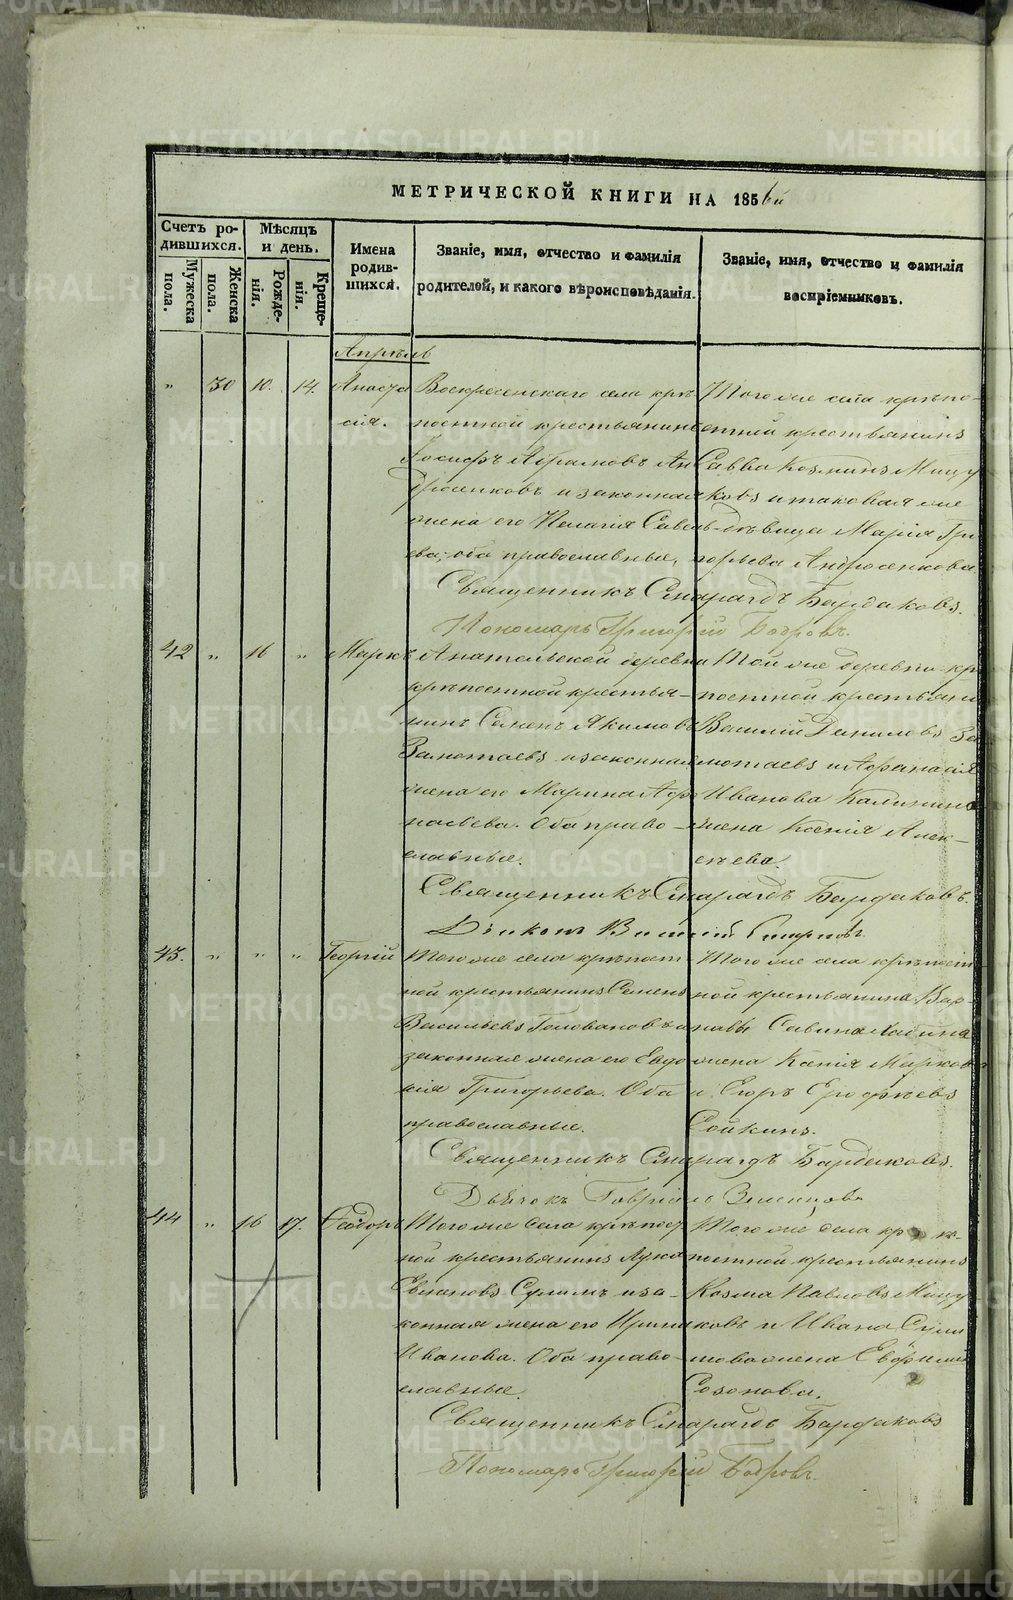 МЕТРИЧЕСКОЙ КНИГИ НА 1856й
Счетъ ро-
дившихся.
Мѣсяцъ
и день.
Имена
родив-
шихся.
Званіе, имя, отчество и фамилія
родителей, и какого вѣроисповѣданія.
Званіе, имя, отчество и фамилія
воспріемниковъ.
Мужеска
пола.
Женска
пола.
Рожде-
нія.
Креще-
нія.
Апрѣль
" 30 10. 14. Анаста
сія.
Воскресенскаго села крѣ
постной крестьянинъ
Іосифъ Абрамовъ Ан
дросенковъ и законная
жена его Пелагія Савель-
ева; оба православные,
Того же села крѣпо-
стный крестьянинъ
Савва Козминъ Мицу
ковъ и таковая же
дѣвица Марія Гри
горьева Андросенкова
Священникъ Смарагдъ Бардаковъ.
Пономарь Григорій Бобровъ.
42 " 16 " Маркъ
деревни
крѣпостной крестья-
нинъ Семенъ Якимовъ
Замотаевъ и законная
жена его Марина Афо
насьева. Оба право-
славные.
Той же деревни крѣ
постной крестьяни
Василій Даниловъ За
мотаевъ и Афанасія
Иванова Калинина
жена Ксенія Алек-
сѣева.
Священникъ Смарагдъ Бардаковъ.
Діаконъ Смирновъ
43. " " " Георгій
Того же села крѣпост
ной крестьянинъ Семенъ
Васильевъ Головановъ и
законная жена его Евдо
кія Григорьева. Оба
православные.
Того же села крѣпост
ной крестьянина Вар-
навы Савина
жена Ксенія Марков
и Егоръ Ерофѣевъ
Сойкинъ.
Священникъ Смарагдъ Бардаковъ.
Дьячокъ Гавріилъ
44 " 16 17. Ѳеодоръ
Того же села крѣпост
ной крестьянинъ Лука
Сулимъ и за-
конная жена его Ирина
Иванова. Оба право-
славные.
Того же села крѣ
постной крестьянинъ
Козма Павловъ Мицу
ковъ и Ивана Сули
мова жена Евфимія
Созонова.
Священникъ Смарагдъ Бардаковъ
Пономарь Григорій Бобровъ.
METRIKI.GASO-URAL.RU